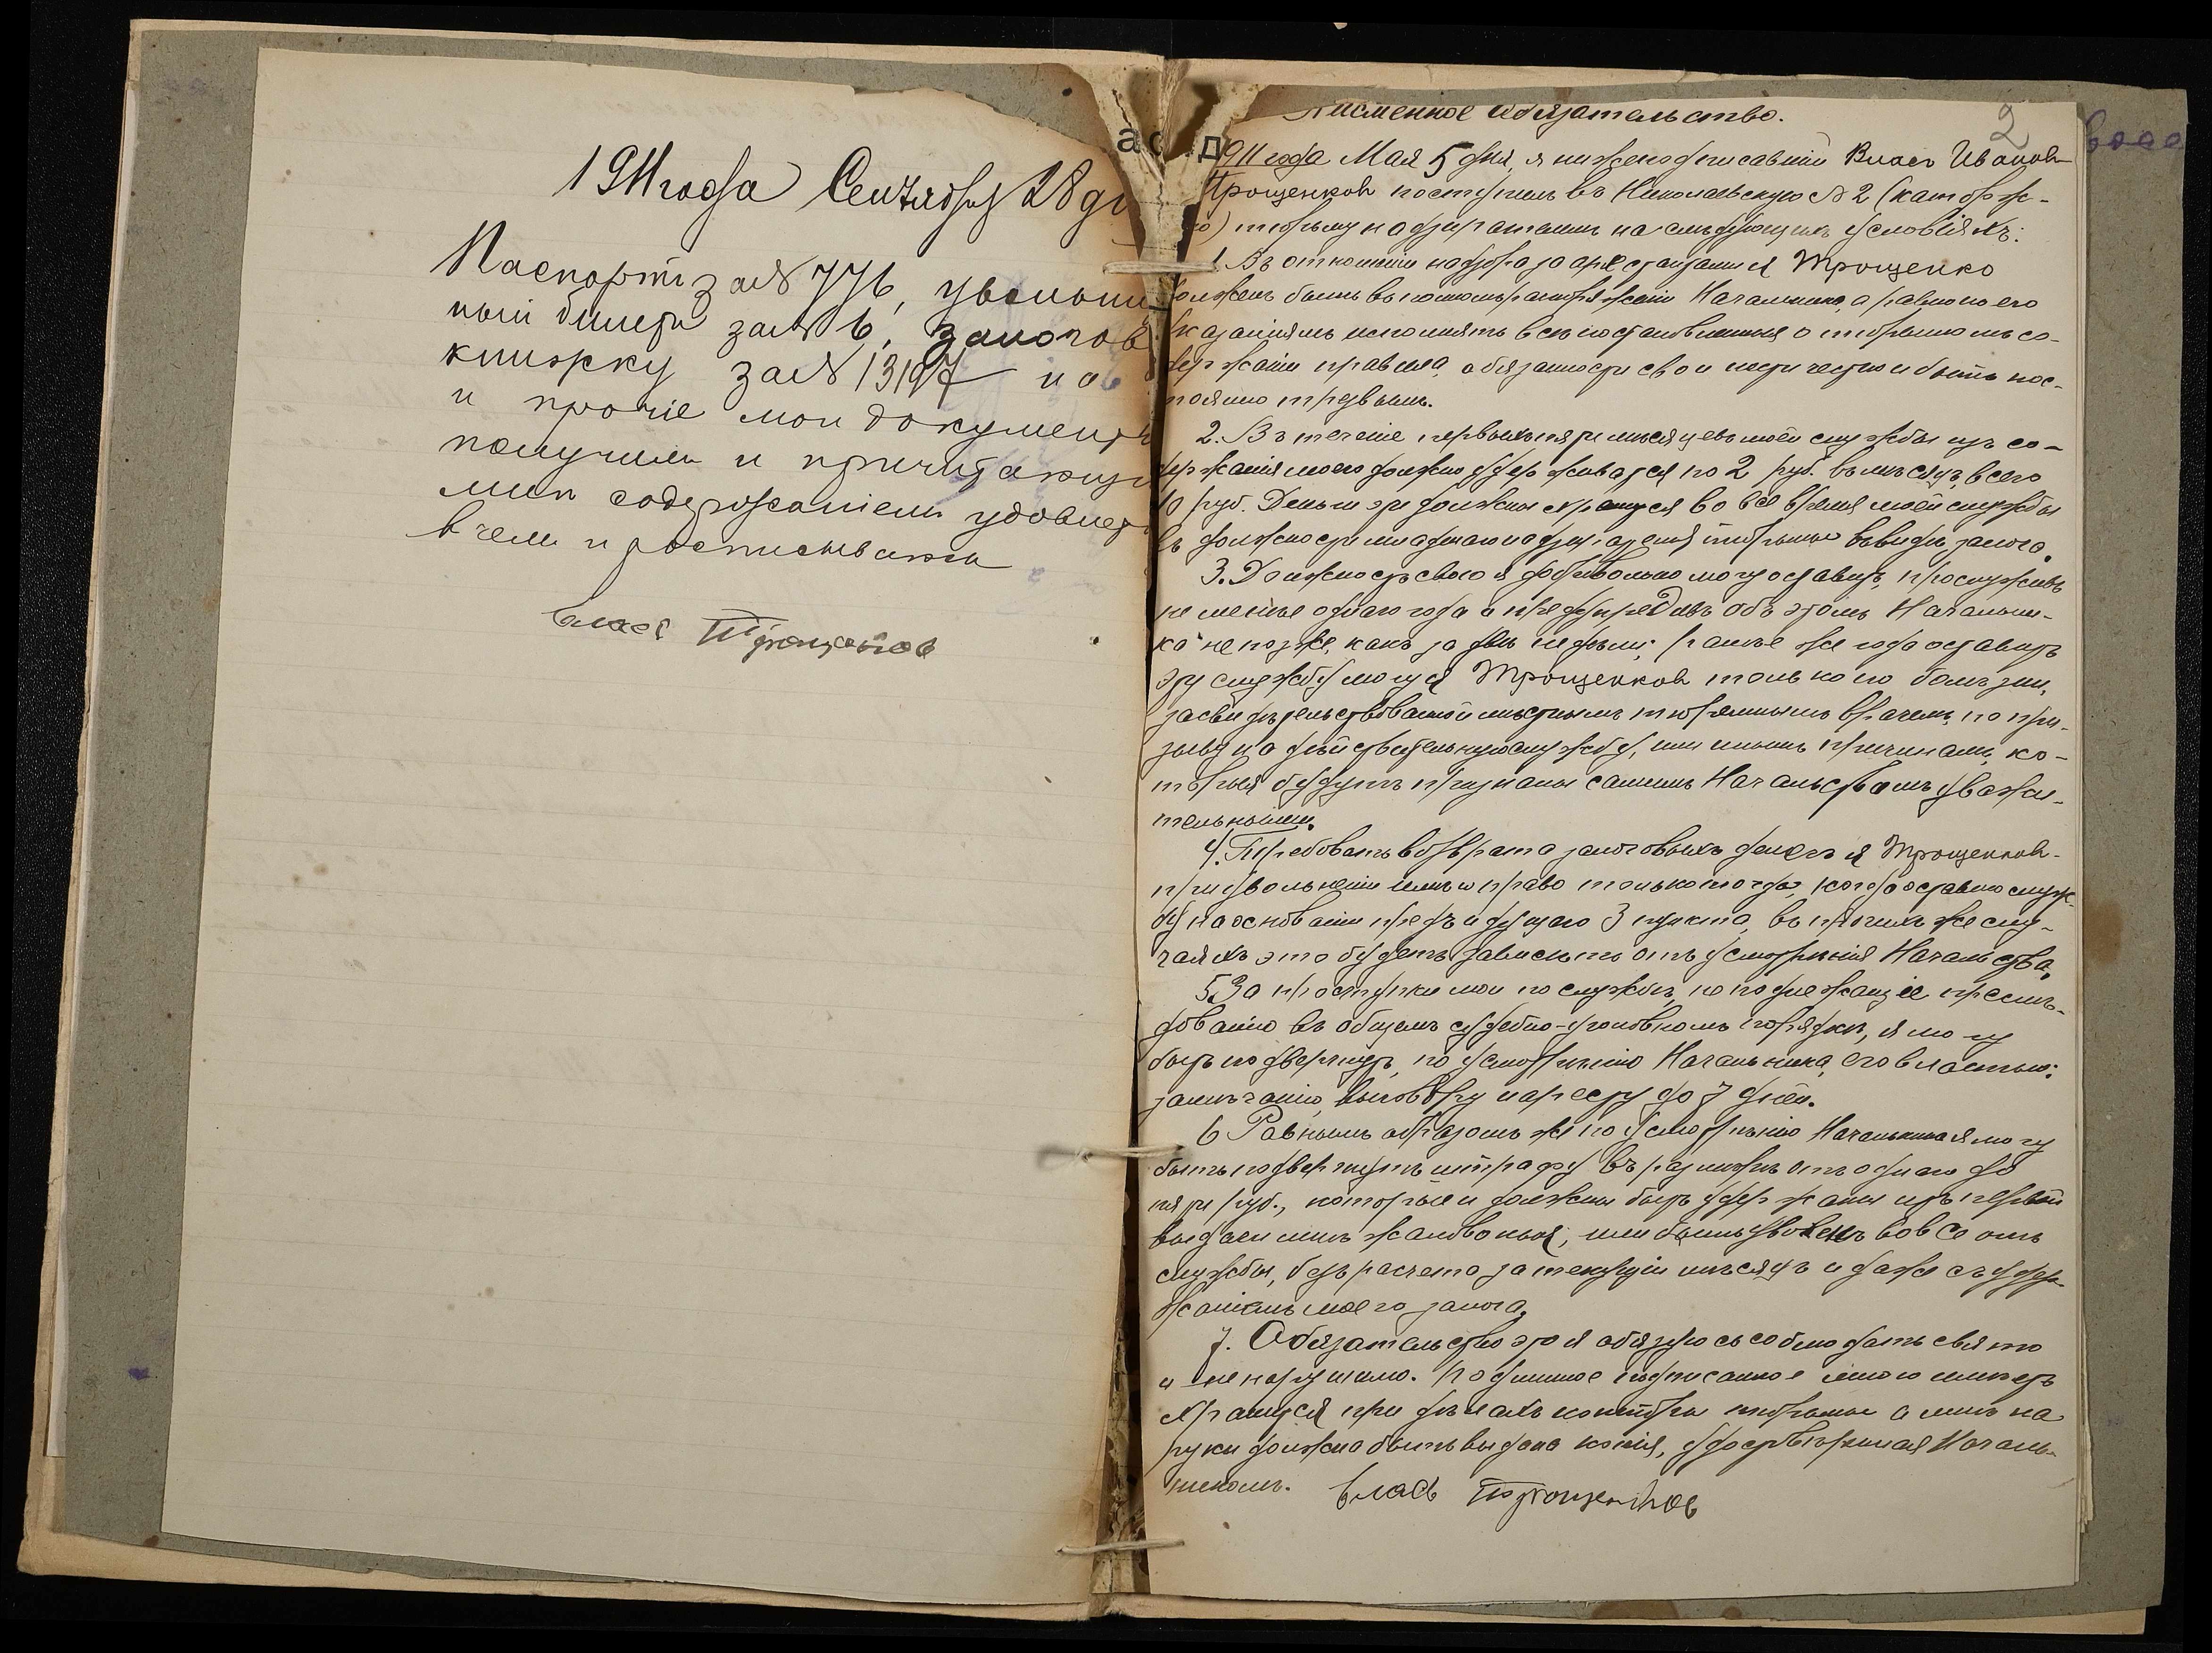 1911 года Сентября 28 дн
Паспортъ за № 776, увольни
ный билетъ за № 6, залогов
книжку за № 13197 и
и прочіе мои документ
получилъ и причитающи
мнѣ содержаніемъ удовлет
в чемъ и росписываюсь
Власъ Трощенковъ
Писменное обязательство.
2
1911 года Мая 5 дня, я нижеподписавшій Власъ Ивановъ
Трощенковъ поступилъ въ Николаевскую № 2 (каторж-
ую) тюрьму надзирателемъ на слѣдующихъ условіяхъ:
1. Въ отношеніи надзора за арестантами я Трощенко
долженъ быть въ полномъ распоряженіи Начальника, а равно по его
указаніямъ исполнять всѣ постановленныя о тюремномъ со-
держаніи правила, обязанности свои нести честно и быть пос-
тоянно трезвымъ.
2. Въ теченіе первыхъ пяти мѣсяцевъ моей службы изъ со-
держанія моего должно удерживатся по 2 руб. въ мѣсяцъ, всего
10 руб. Деньги эти должны хранится во всё время моей службы
въ должности младшаго надзирателя тюрьмы въ видѣ залога.
3. Должность свою я добровольно могу оставить, прослуживъ
не менѣе одного года и предупредивъ объ этомъ Начальни-
ка не позже, какъ за двѣ недѣли; ранѣе же года оставить
эту службу могу я Трощенковъ только по болѣзни,
засвидѣтельствованной мѣстнымъ тюремнымъ врачемъ, по при-
зыву на дѣйствительную службу, или инымъ причинамъ, ко-
торыя будутъ признаны самимъ Начальствомъ уважи-
тельными.
4. Требовать возврата залоговыхъ денегъ я Трощенковъ
при увольненіи имѣю право только тогда, когда оставлю служ-
бу на основаніи предъидущаго 3 пункта, въ прочихъ же слу-
чаяхъ это будетъ зависить отъ усмотрѣнія Начальства.
5. За проступки мои по службѣ, не подлежащіе преслѣ-
дованію въ общемъ судебно-уголовномъ порядкѣ, я могу
быть подвергнутъ, по усмотрѣнію Начальника, его властью:
замѣчанію, выговору и аресту до 7 дней.
6. Равнымъ образомъ же по усмотрѣнію Начальника я могу
быть подвергнутъ штрафу въ размѣрѣ отъ одного до
пяти руб., которые и должны быть удержаны изъ первой
выдачи мнѣ жалованья, или быть уволенъ вовсе отъ
службы, безъ расчета за текущій мѣсяцъ и даже съ удер-
жаніемъ моего залога.
7. Обязательство это я обязуюсь соблюдать свято
и ненарушимо. Подлинное подписанное мною имѣетъ
хранится при дѣлахъ конторы тюрьмы а мнѣ на
руки должна быть выдана копія, удостовѣренная Началь-
никомъ. Власъ Трощенковъ